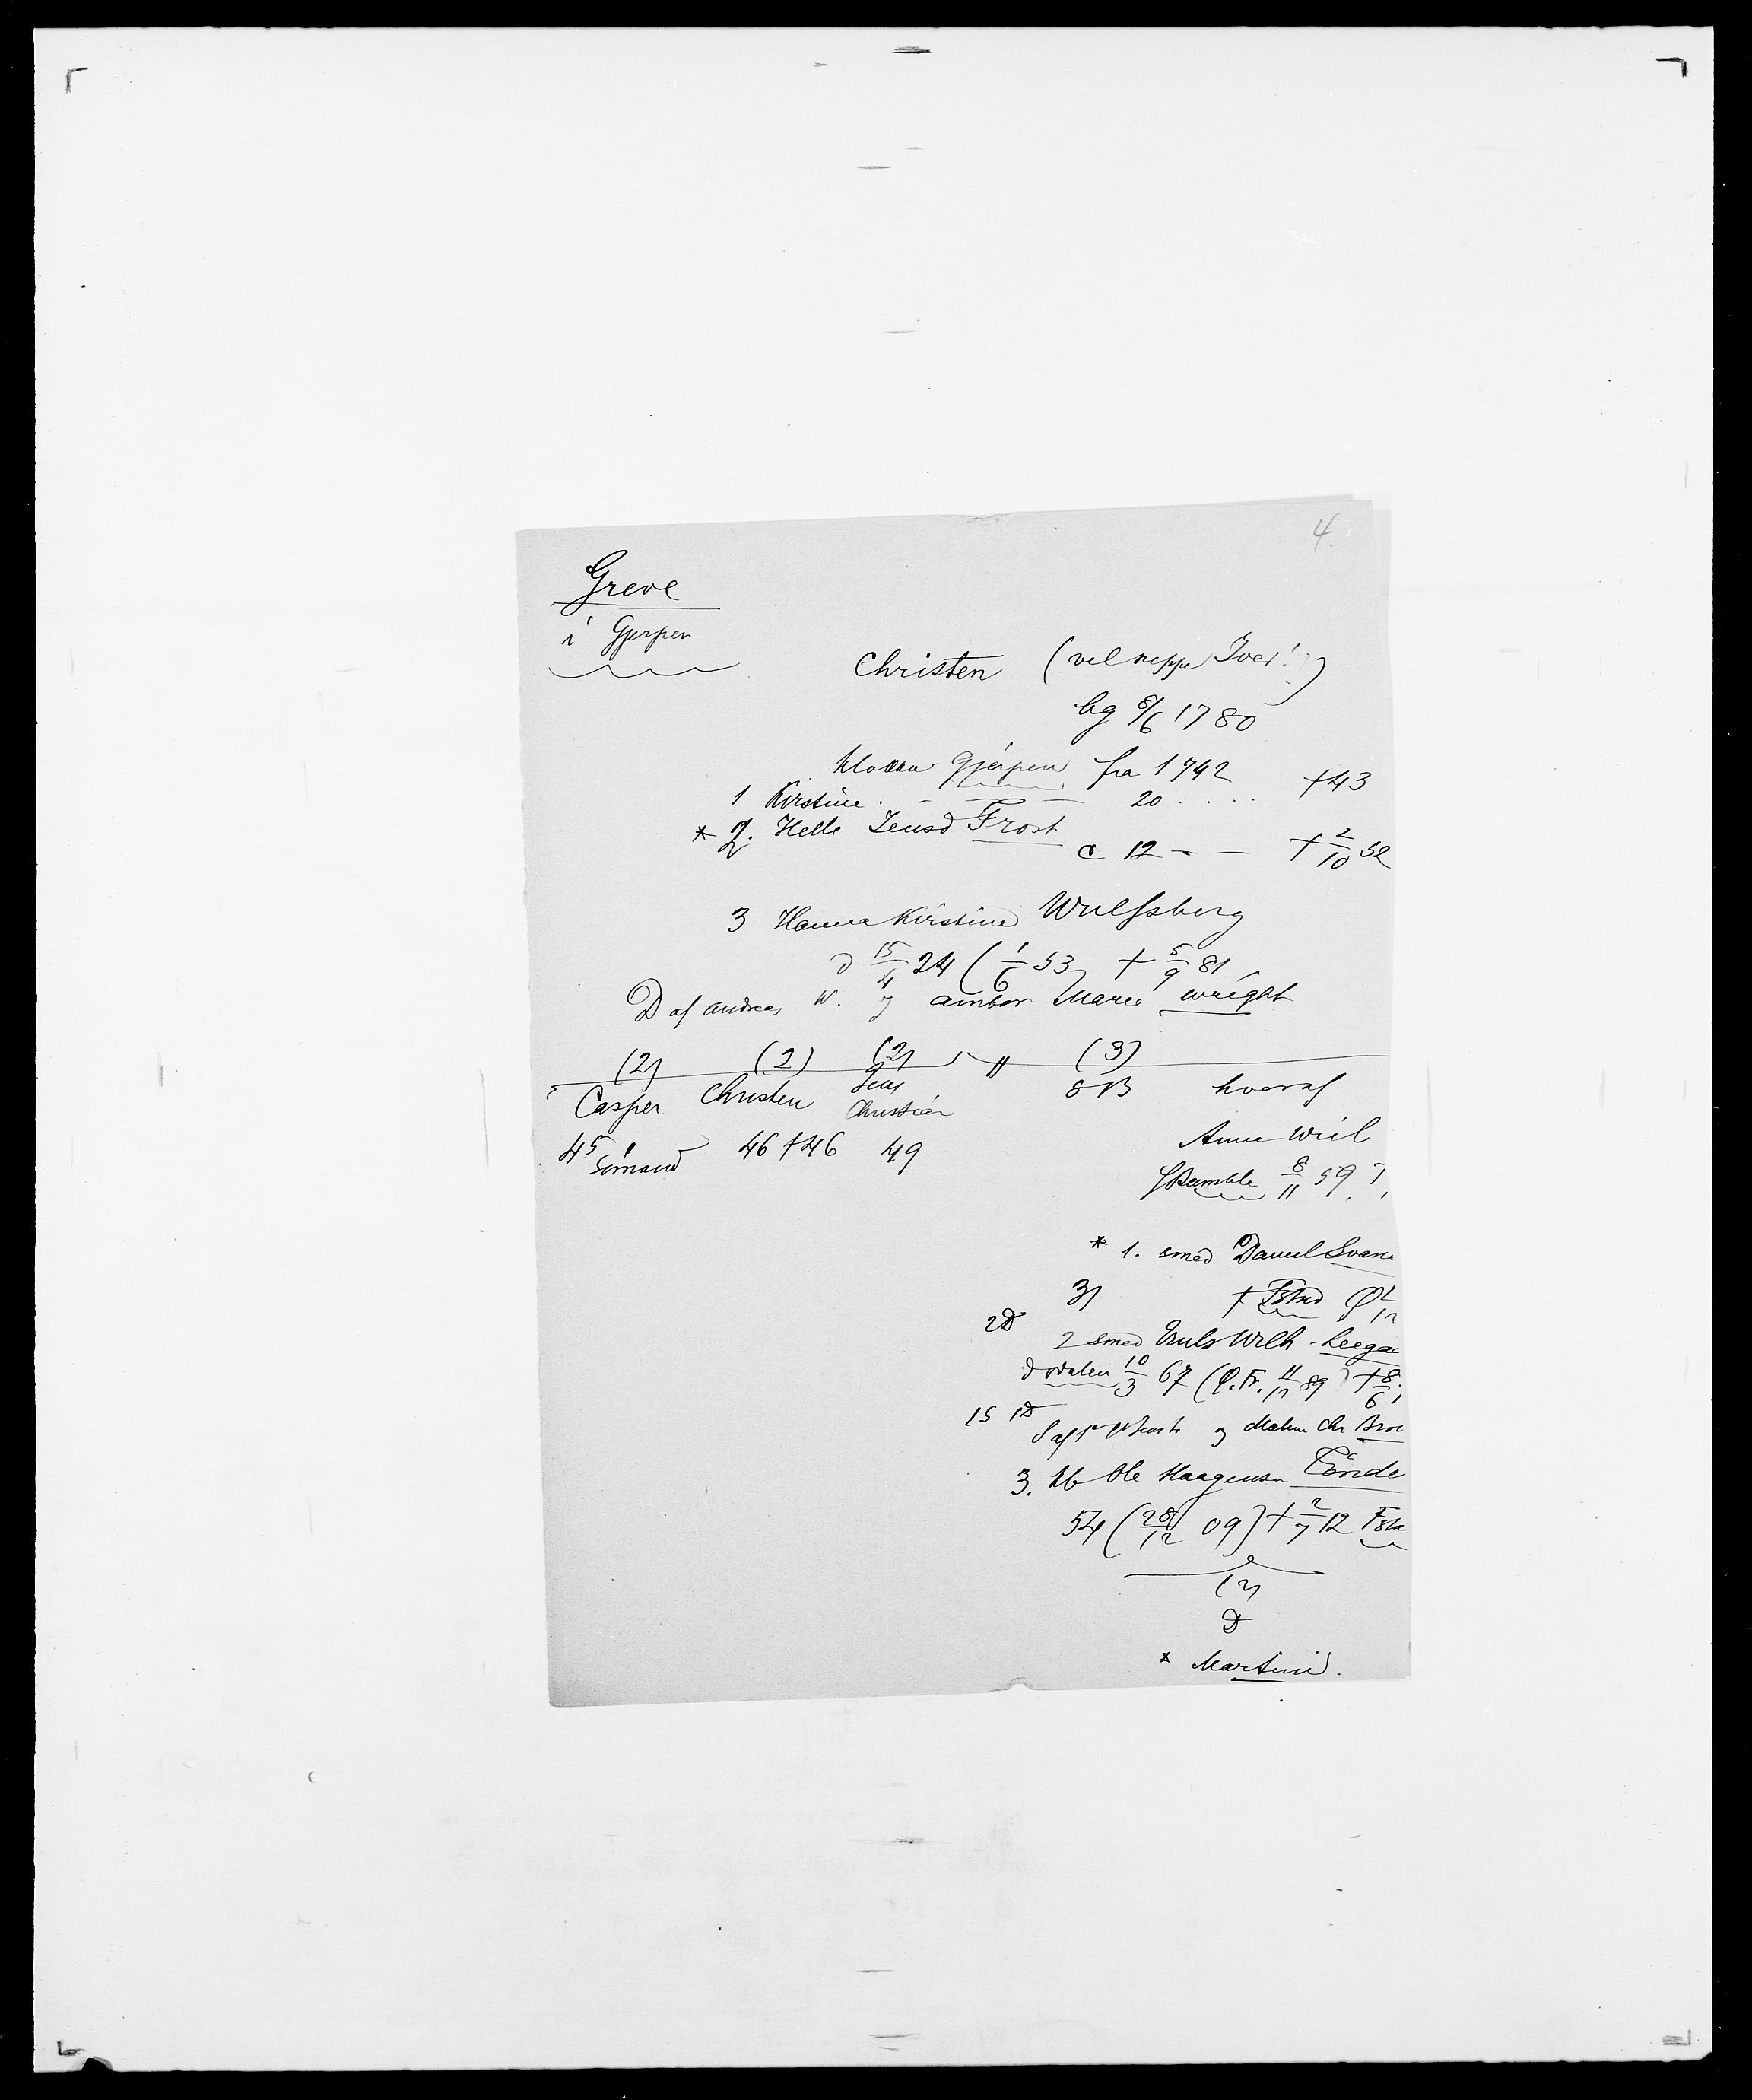 4.
Greve
i Gjerpen
Christen (vel neppe Iver!)
bg 8/6 1780
klokker Gjerpen fra 1742 †43
1 Kirstine - - 20 ....
* 2. Helle Jensd Frost
c 12 - - † 2/10 52
3 Hanna Kirstine Wulfsberg
d 15/4 24 ( 1/6 53 † 5/9 81
D af Andreas W. og Amber Marie Wright
(2) (2) (2) " (3)
Casper Christen Jens Christian 8 B hvoraf
45 Sømand 46 †46 49
Anne Wiel
f Bamble 8/11 59
* 1. smed Daniel Svane
3)
2D
2 smed Wilh. Leega
10/3 67 11/11 89 † 8/6
1S 1D
og Malene Chr Bro
3. Ole Haagensen Tinde
54 (28/12 09) † 2/7 12
D
* Martini.